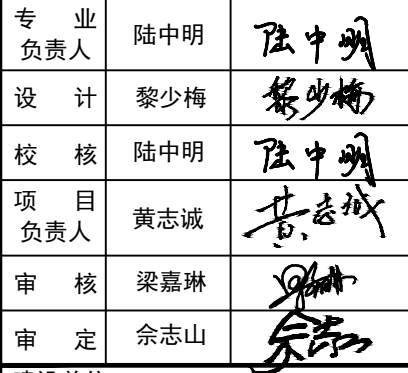 专 业
负责人 陆中明 陆中明
设 计 黎少梅 黎少梅
校 核 陆中明 陆中明
项 目
负责人 黄志诚 黄志诚
审 核 梁嘉琳
审 定 佘志山 佘志山